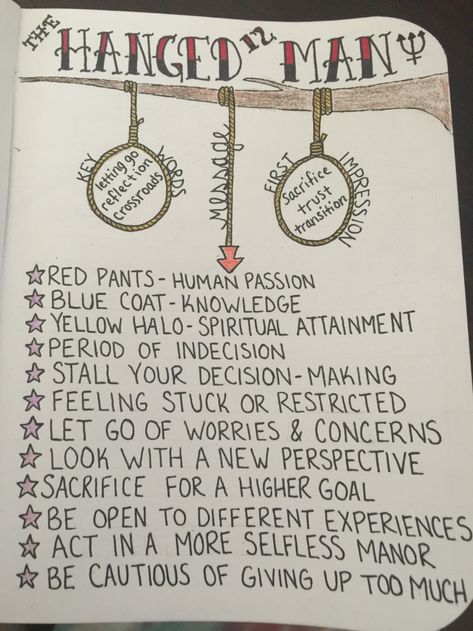 THE HANGED 12 MAN
KEY WORDS
letting go
reflection
crossroads
Message
FIRST IMPRESSION
Sacrifice
trust
transition
RED PANTS - HUMAN PASSION
BLUE COAT - KNOWLEDGE
YELLOW HALO - SPIRITUAL ATTAINMENT
PERIOD OF INDECISION
STALL YOUR DECISION-MAKING
FEELING STUCK OR RESTRICTED
LET GO OF WORRIES & CONCERNS
LOOK WITH A NEW PERSPECTIVE
SACRIFICE FOR A HIGHER GOAL
BE OPEN TO DIFFERENT EXPERIENCES
ACT IN A MORE SELFLESS MANOR
BE CAUTIOUS OF GIVING UP TOO MUCH